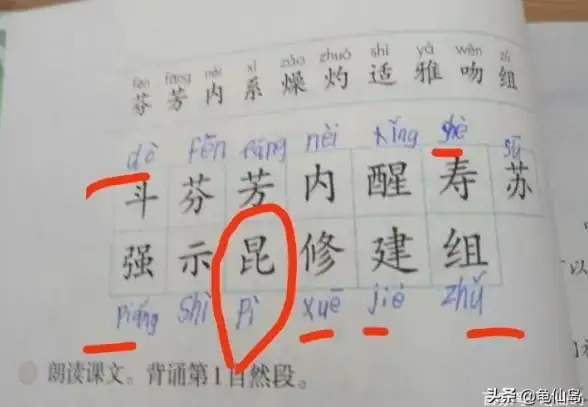 fēn fāng nèi xì zào zhuó shì yǎ wěn zǔ
芬 芳 内 系 燥 灼 适 雅 吻 组
dò Fēn Fāng nèi xǐng shè sū
斗 芬 芳 内 醒 寿 苏
强 示 昆 修 建 组
piáng Shì Pì xuē jiè zhǔ
朗读课文。背诵第1自然段。
头条 @龟仙岛